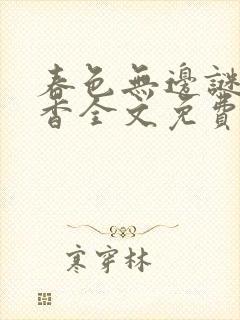 春色無邊謎
香全文免費
寒穿林